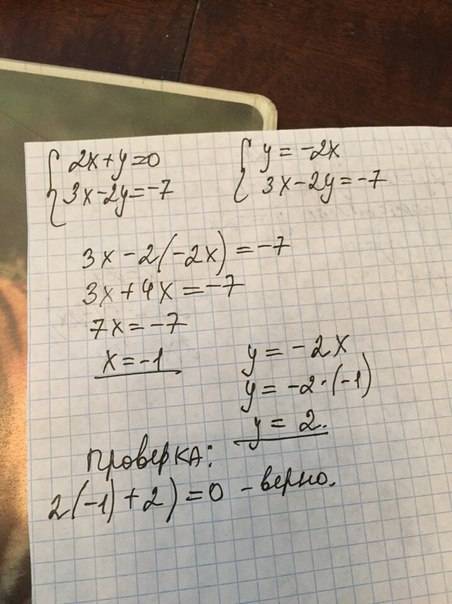 { 2x+y=0
3x-2y=-7
{ y=-2x
3x-2y=-7
3x-2(-2x)=-7
3x+4x=-7
7x=-7
x=-1
y=-2x
y=-2·(-1)
y=2.
проверка:
2(-1)+2)=0 - верно.